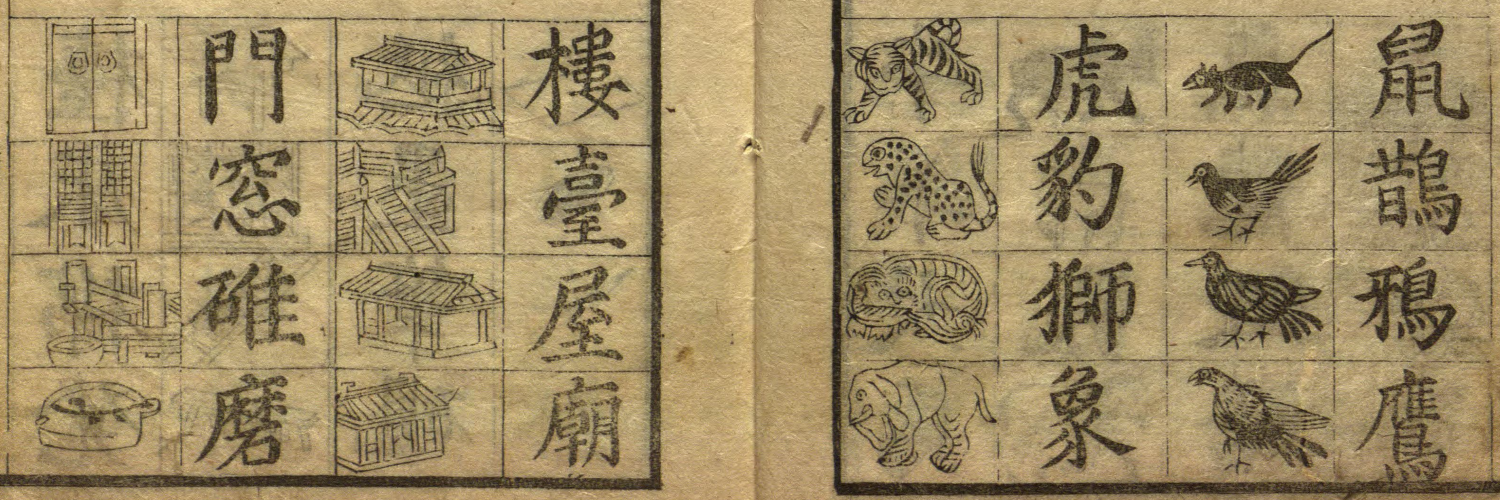 鼠鵲鴉鷹
虎豹獅象
樓臺屋廟
門窓碓磨